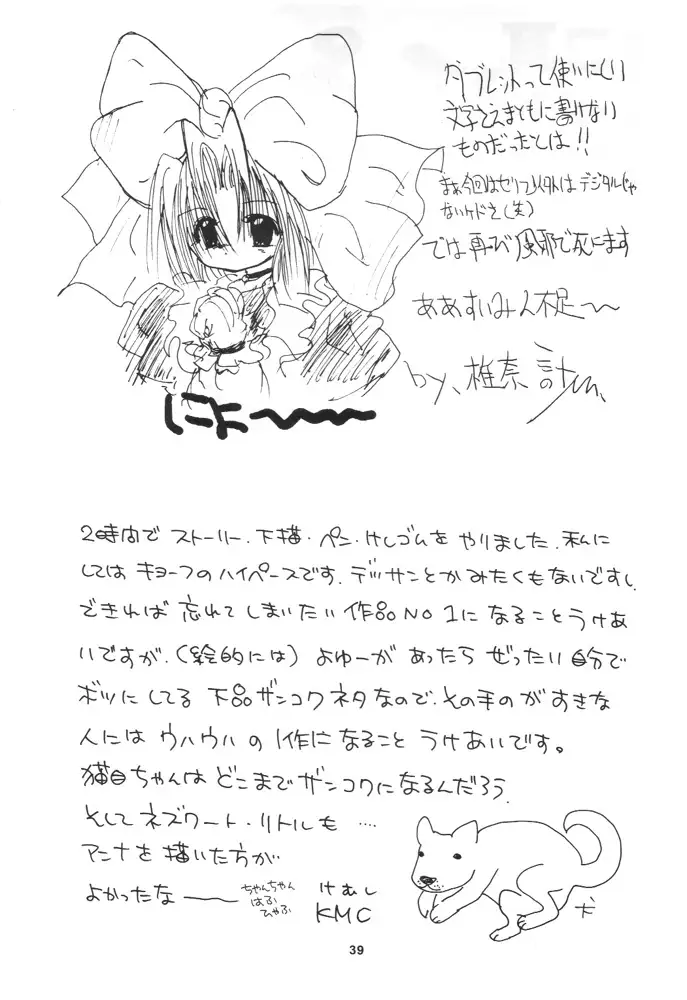 タブレットって使いにくい
文字さえまともに書けない
ものだったとは!!
まぁ今回はセリフ以外はデジタルじゃ
ないケドさ(笑)
では再び風邪で死にます
ああすいみん不足〜〜
by、椎奈
にょ〜〜〜
2時間でストーリー.下描・ペン・けしゴムをやりました.私に
してはキョーフのハイペースです.デッサンとかみたくもないですし.
できれば忘れてしまいたい作品NO1になることうけあ
いですが.(絵的には)よゆーがあったらぜったい自分で
ボツにしてる下品ザンコクネタなので、その手のがすきな
人にはウハウハの1作になることうけあいです。
猫目ちゃんはどこまでザンコクになるんだろう.
そしてネズワート・リトルも….
アンナを描いた方が
よかったなー
ちゃんちゃん
はふ
ひゃふ
けむし
KMC
犬
39